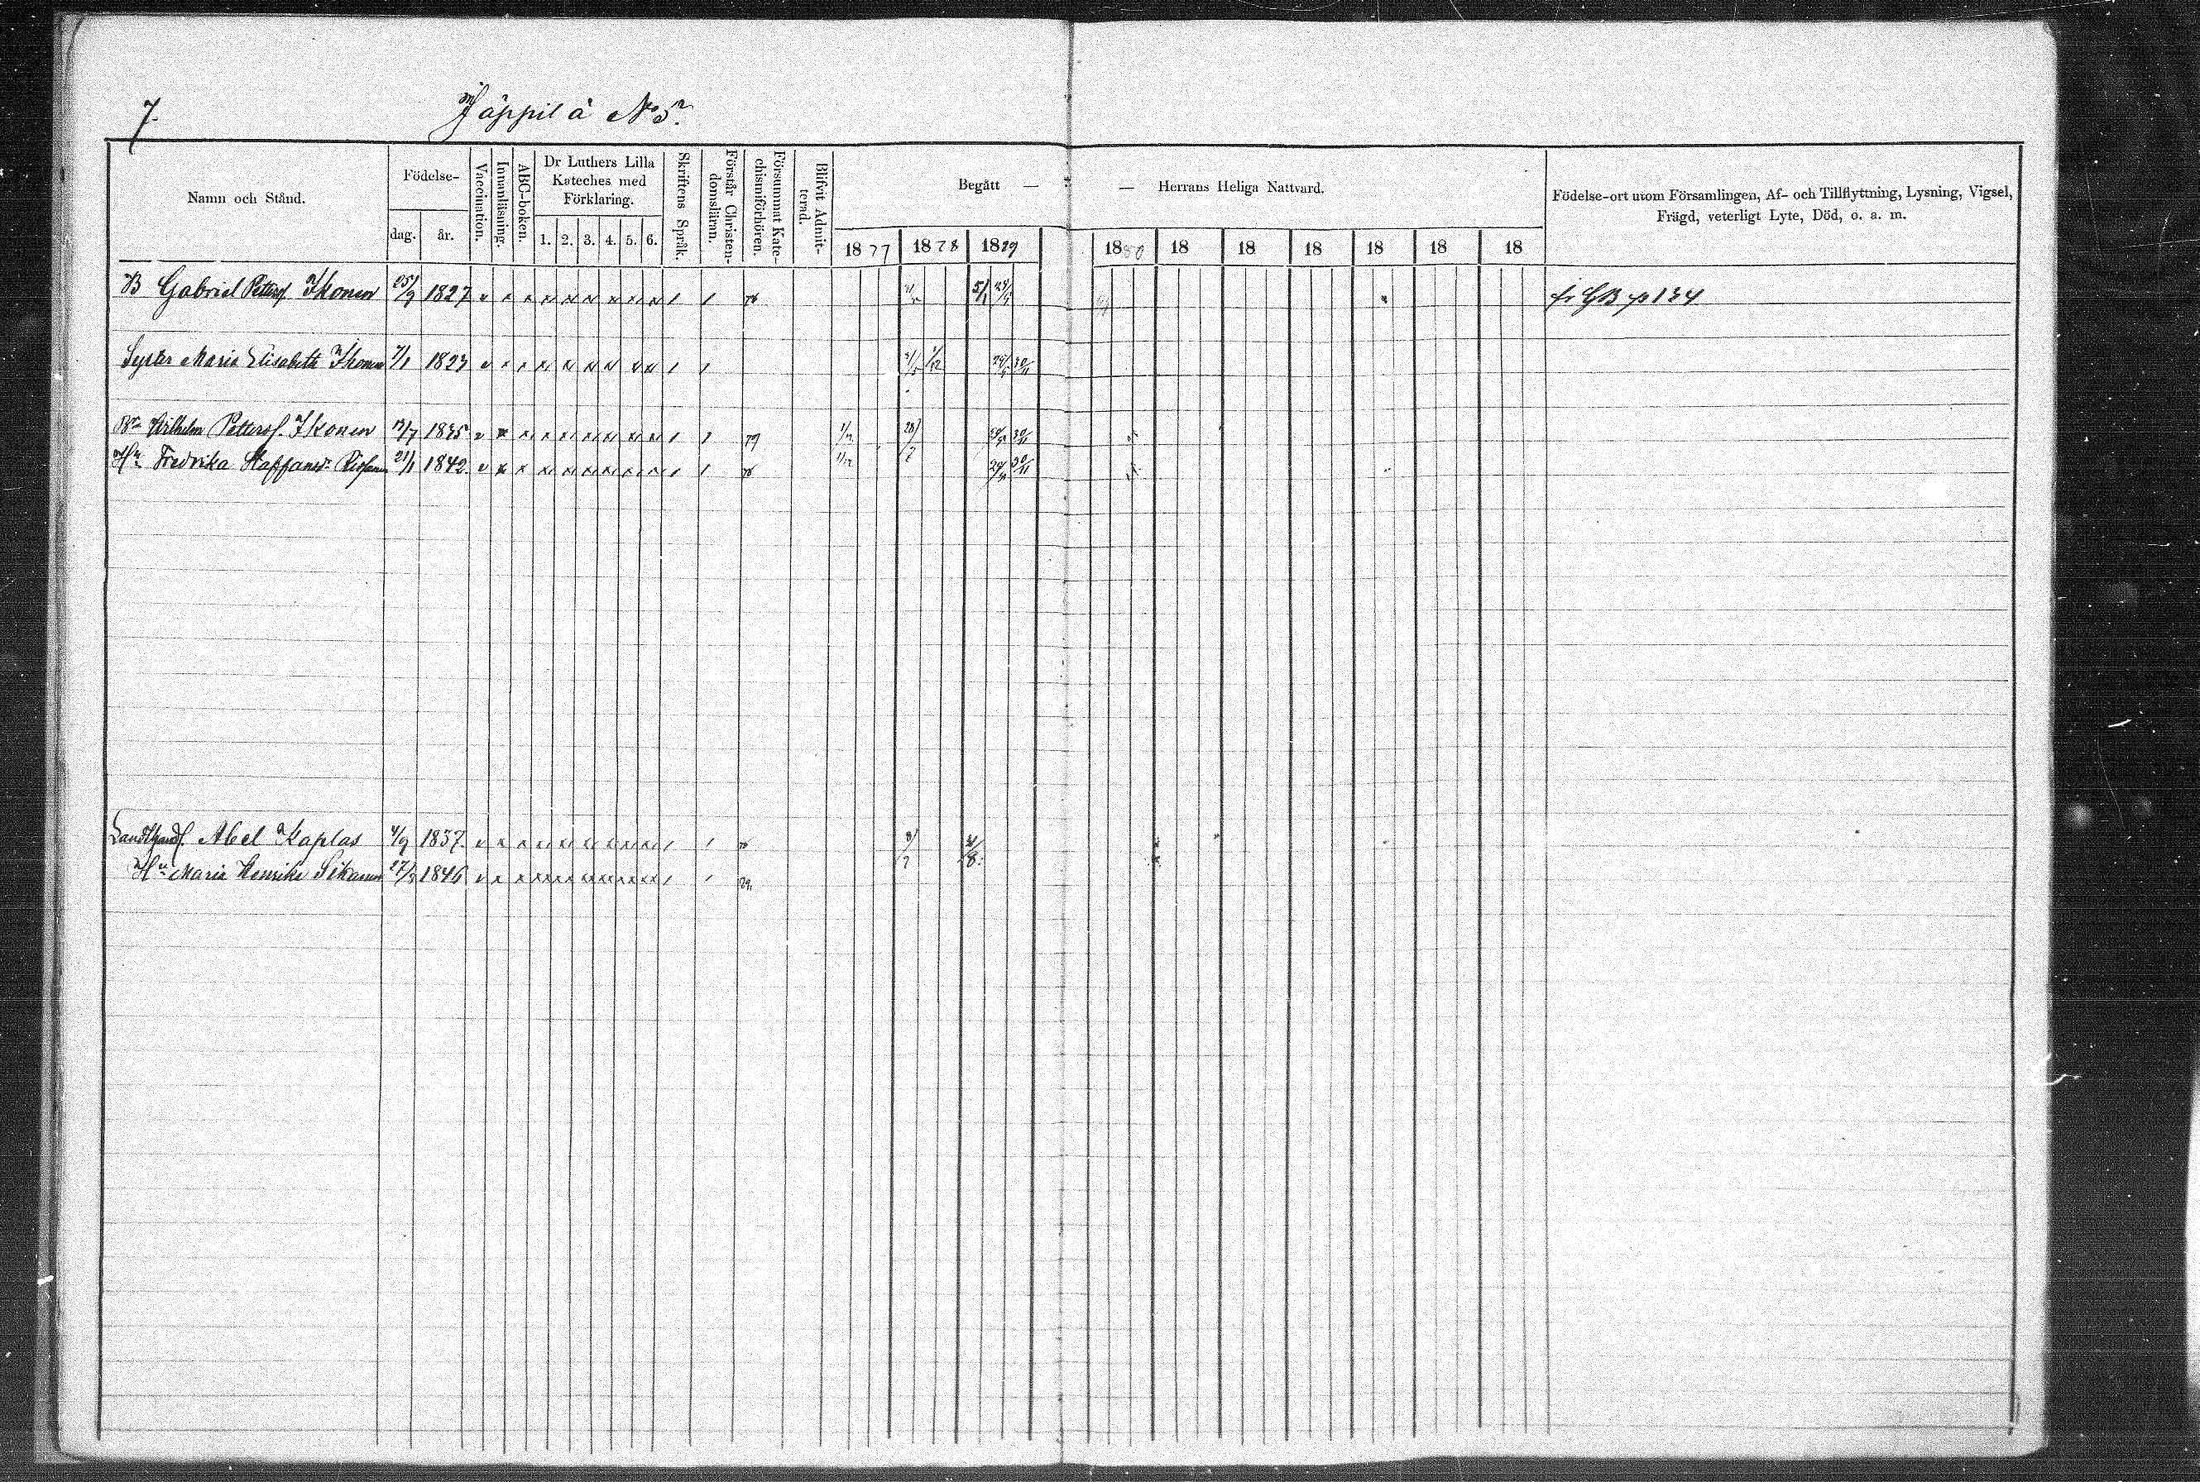 7.
Jäppilä No 5.
Namn och Stånd.
Födelse-
dag.
år.
Vaccination.
Innanläsning.
ABC-boken.
Dr Luthers Lilla
Kateches med
Förklaring.
1. 2. 3. 4. 5. 6.
Skriftens Språk.
Förstår Christen-
domsläran.
Försummat Kate-
chismiförhören.
Blifvit Admit-
terad.
Begått — — Herrans Heliga Nattvard.
1877 1878 1879 1880 18 18 18 18 18 18
Födelse-ort utom Församlingen, Af- och Tillflyttning, Lysning, Vigsel,
Frägd, veterligt Lyte, Död, o. a. m.
B Gabriel Petterss. Ikonen 25/9 1827 v x x x x x x x x / / 78 5/1 fr GB p 134
Syster Maria Elisabeth Ikonen 7/1 1823 v / /
Br Wilhelm Petterss. Ikonen 1835 v x x x x x x x x / / 79 30/11
Hu Fredrika Staffansdr 21/1 1842. v x x x x x x x x / / 78 1/12 30/11
Abel Kaplas 4/9 1837. v x x x x x x x x / / 78
Hu Maria Henriks Sikanen 1846 v x x x x x x x x / /